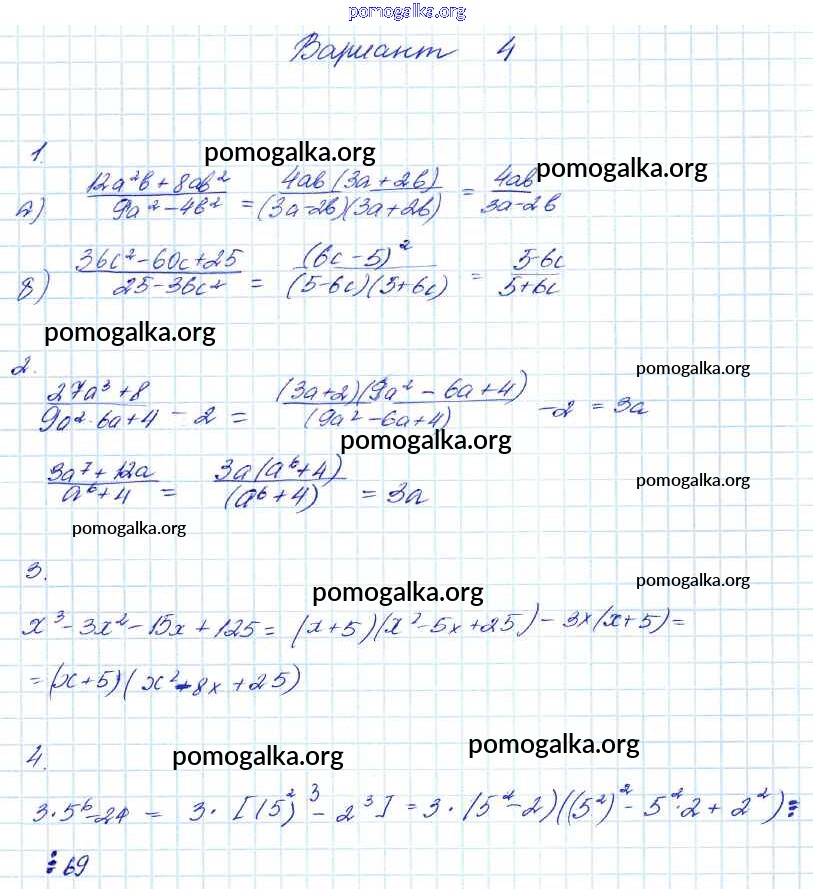 pomogalka.org
Вариант 4
1.
pomogalka.org
pomogalka.org
а) (12a²b + 8ab²)/(9a² - 4b²) = (4ab(3a + 2b))/((3a-2b)(3a+2b)) = 4ab/(3a-2b)
б) (36c² - 60c + 25)/(25 - 36c²) = (6c - 5)²/((5-6c)(5+6c)) = (5-6c)/(5+6c)
pomogalka.org
2.
pomogalka.org
(27a³ + 8)/(9a² · 6a + 4) - 2 = ((3a+2)(9a² - 6a + 4))/(9a² - 6a + 4) - 2 = 3a
pomogalka.org
(3a⁷ + 12a)/(a⁶ + 4) = (3a(a⁶ + 4))/(a⁶ + 4) = 3a
pomogalka.org
pomogalka.org
3.
pomogalka.org
pomogalka.org
x³ - 3x² - 15x + 125 = (x+5)(x² - 5x + 25) - 3x(x+5) =
= (x+5)(x² - 8x + 25)
4.
pomogalka.org
pomogalka.org
3·5⁶ - 24 = 3·[(5²)³ - 2³] = 3·(5² - 2)((5²)² - 5²·2 + 2²) ⋮
⋮ 69